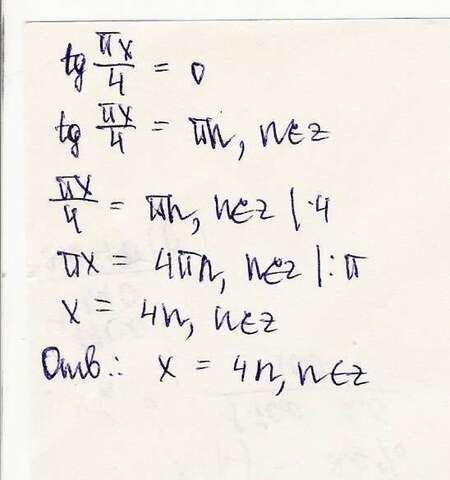 tg πx/4 = 0
tg πx/4 = πn, n∈z
πx/4 = πn, n∈z |·4
πx = 4πn, n∈z |:π
x = 4n, n∈z
Отв.: x = 4n, n∈z